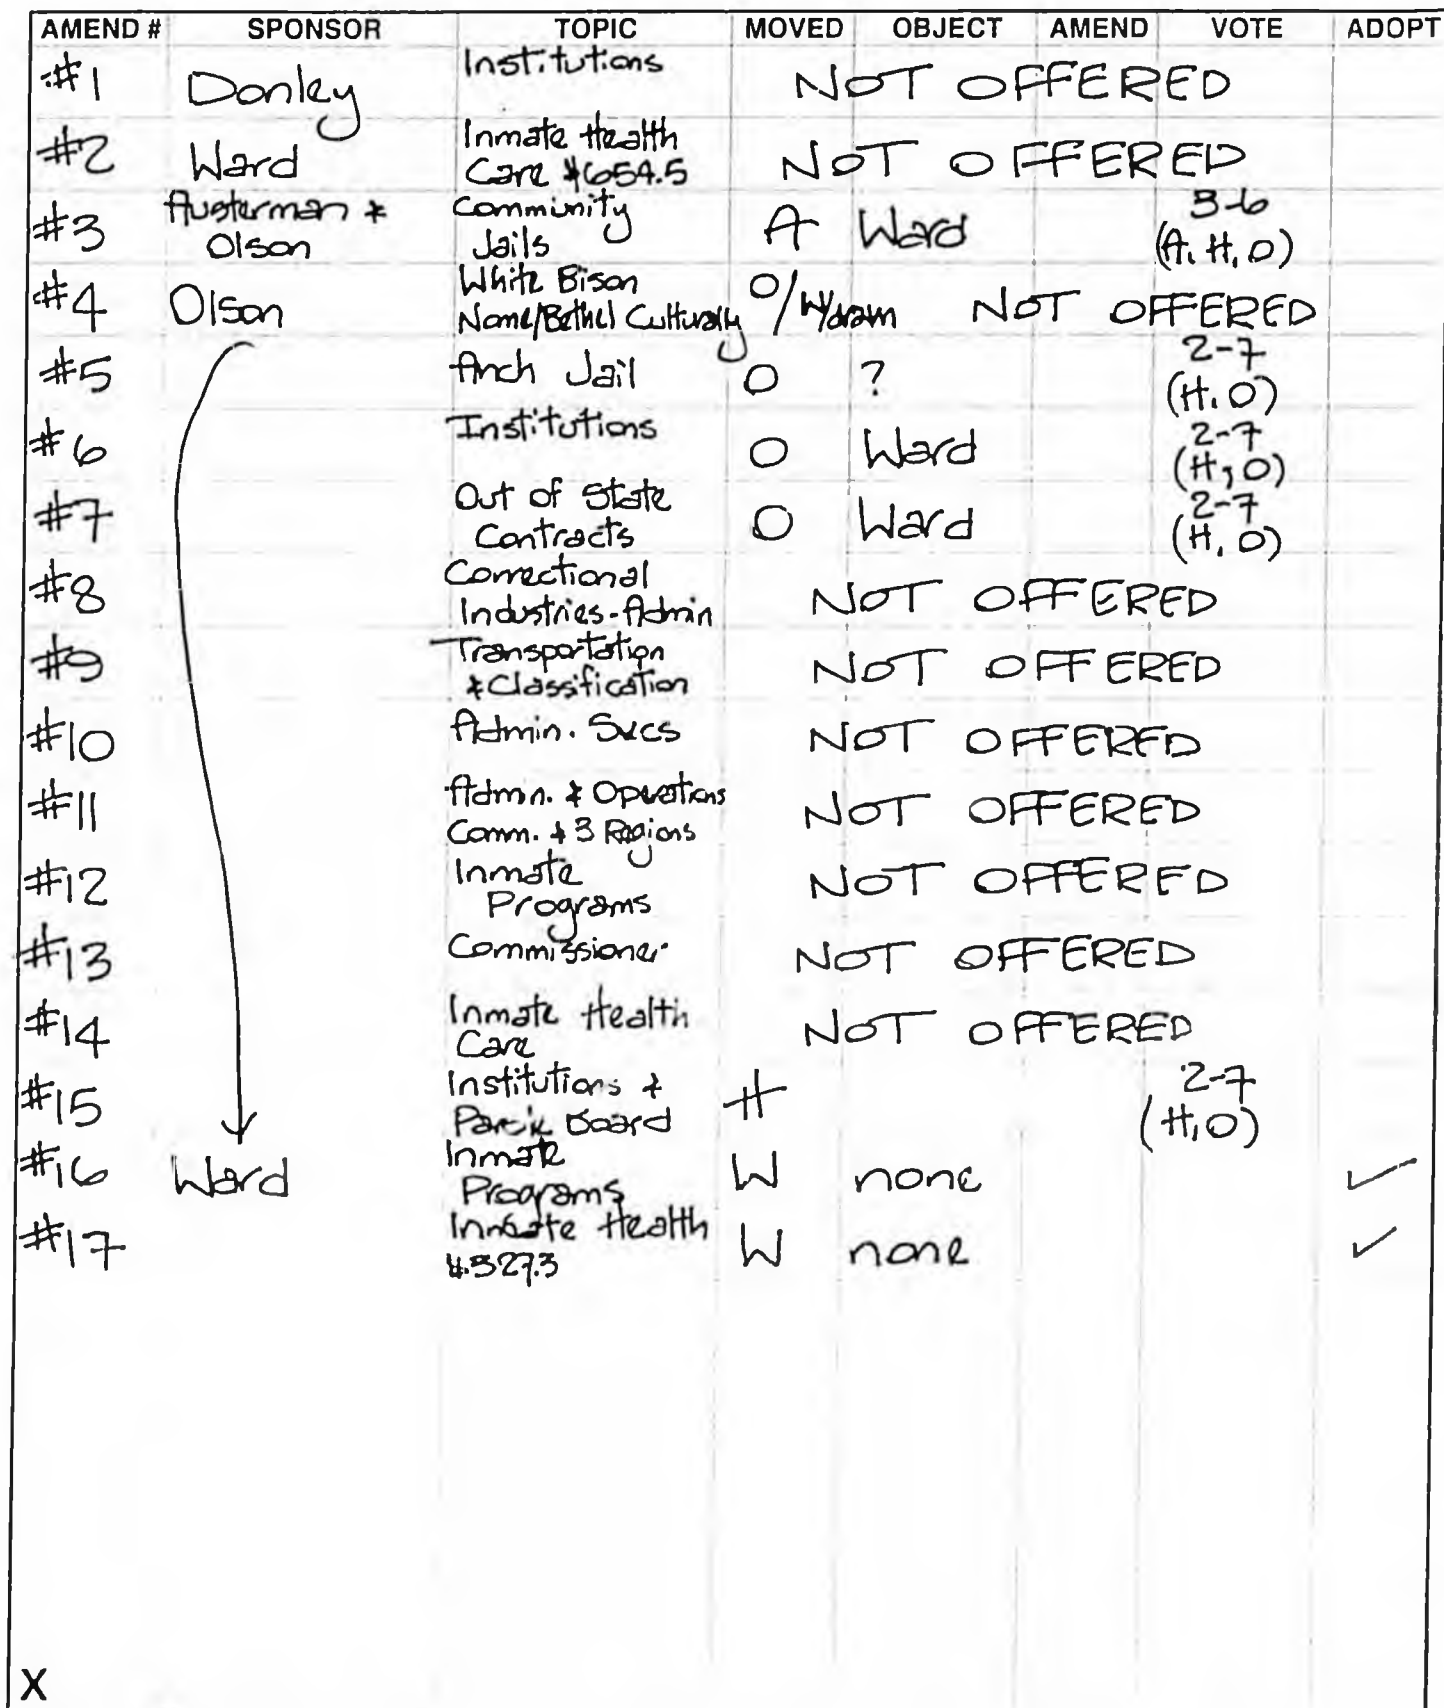 AMEND # SPONSOR TOPIC MOVED OBJECT AMEND VOTE ADOPT
#1 Donley Institutions NOT OFFERED
#2 Ward Inmate Health
Care $654.5 NOT OFFERED
#3 Austerman &
Olson Community
Jails A Ward 3-6
(A, H, O)
#4 Olson White Bison
Name/Bethel Culturally O/W/drawn NOT OFFERED
#5 Anch Jail O ? 2-7
(H, O)
#6 Institutions O Ward 2-7
(H, O)
#7 Out of State
Contracts O Ward 2-7
(H, O)
#8 Correctional
Industries-Admin NOT OFFERED
#9 Transportation
& Classification NOT OFFERED
#10 Admin. Svcs NOT OFFERED
#11 Admin. & Operations
Comm. & 3 Regions NOT OFFERED
#12 Inmate
Programs NOT OFFERED
#13 Commissioner NOT OFFERED
#14 Inmate Health
Care NOT OFFERED
#15 Institutions &
Board H 2-7
(H, O)
#16 Ward Inmate
Programs W none ✓
#17 Inmate Health
327.3 W none ✓
X